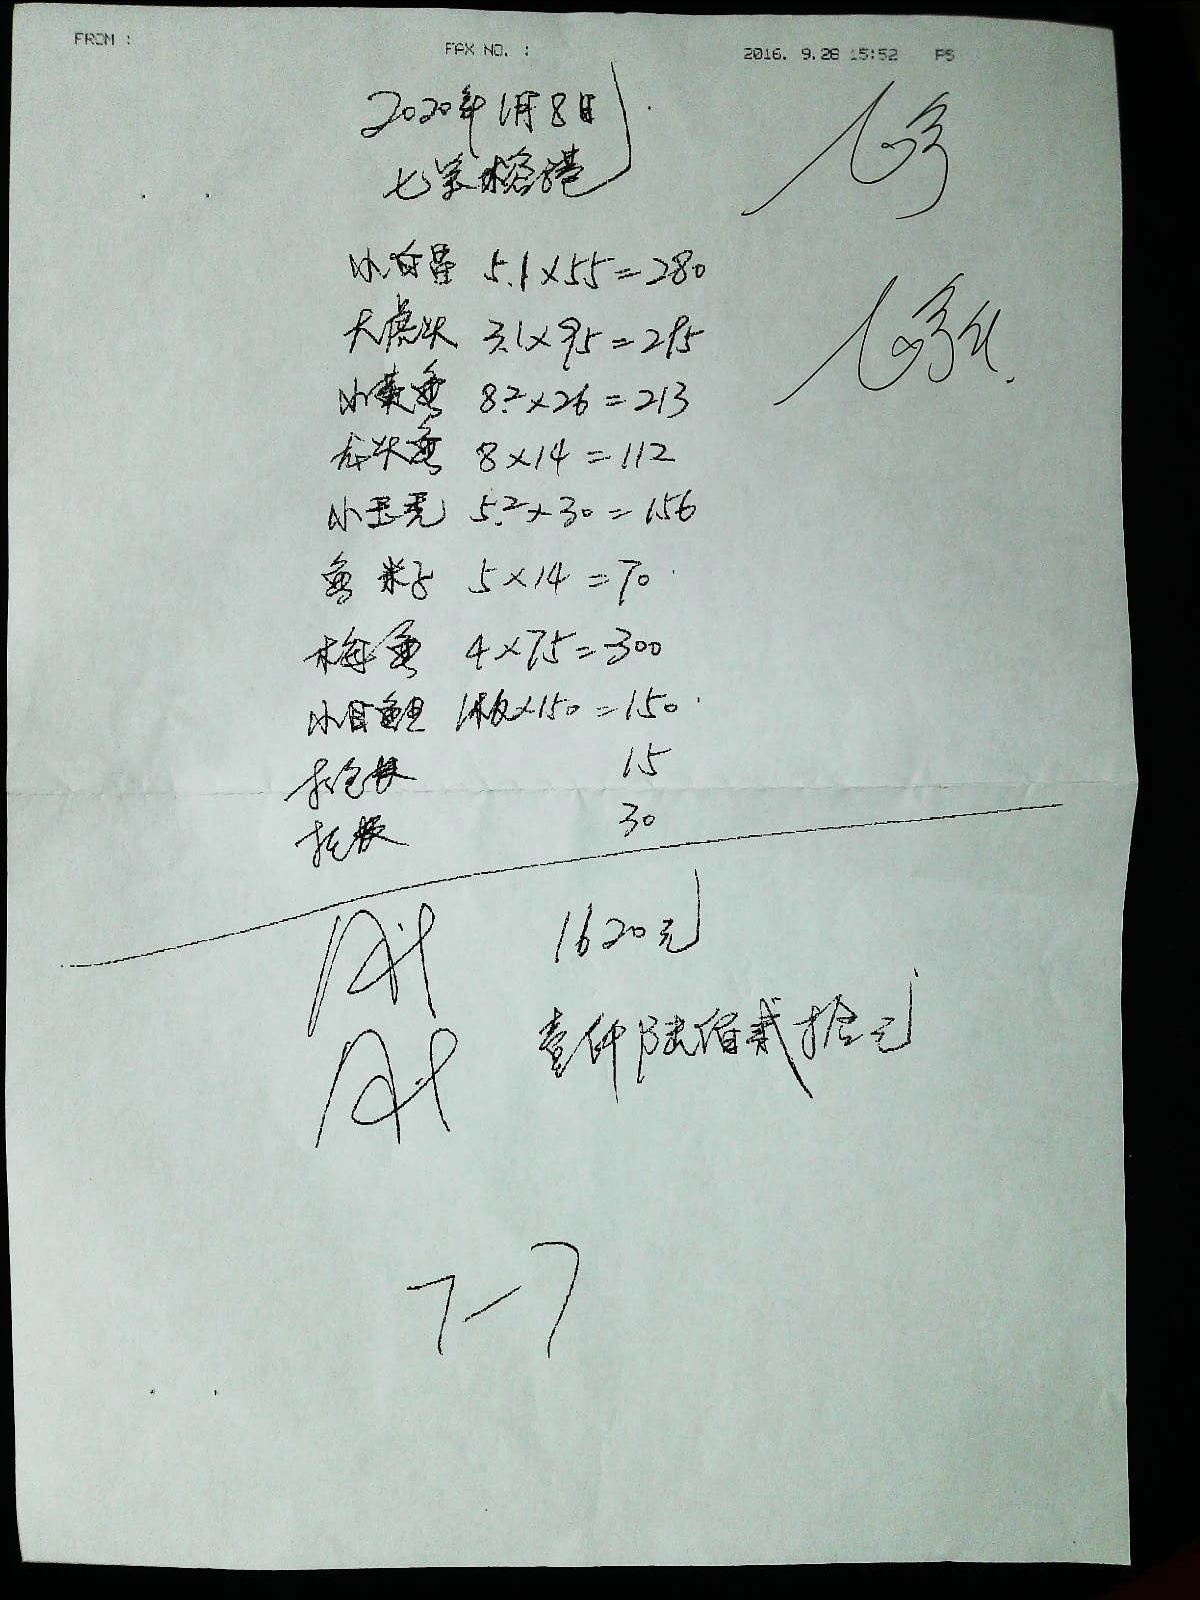 FROM :
FAX NO. :
2016. 9.28 15:52 P5
2020年1月8日
小白昌 5.1×55=280
大虎头 3.1×95=295
小黄鱼 8.2×26=213
龙头鱼 8×14=112
小玉秃 5.2×30=156
鱼籽 5×14=70
梅鱼 4×75=300
小目鱼 1板×150=150
打包费 15
托费 30
1620元
壹仟陆佰贰拾元
7-7